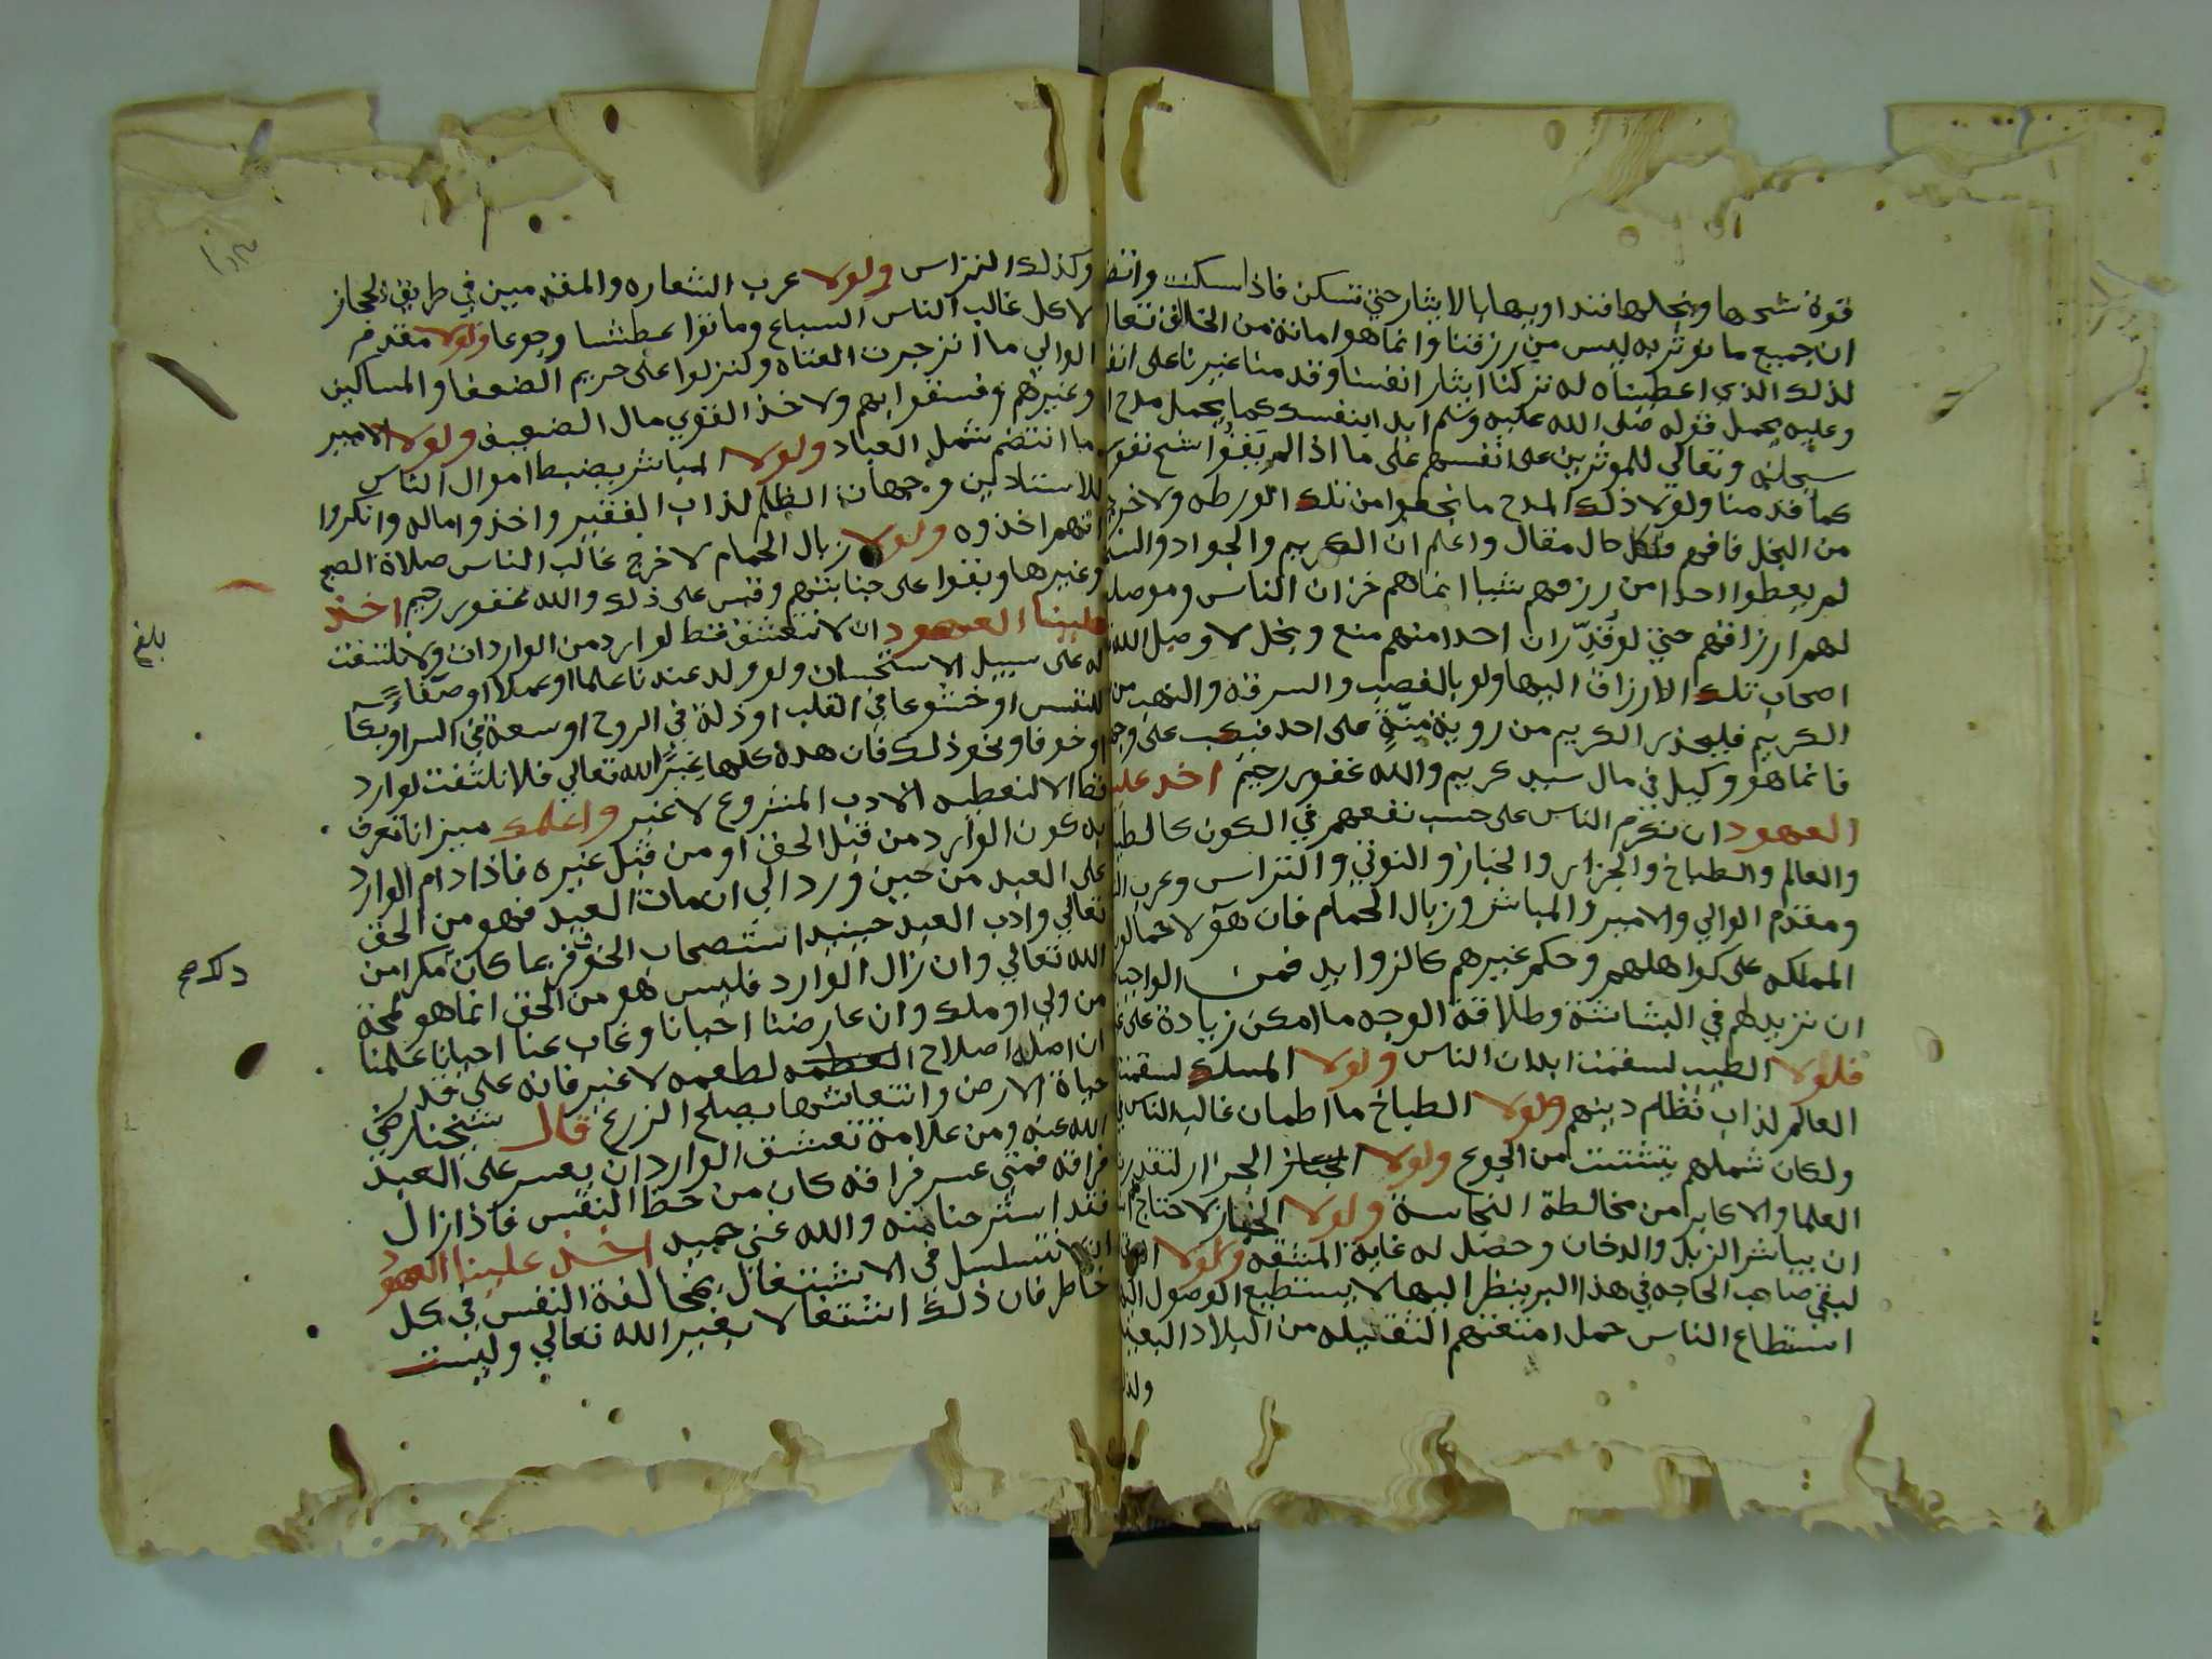 قوة شحها وبخلها فنداويها بالايثار حتي تسكن فاذا سكنت وانقا
ان جميع ما نوثر به ليس من رزقنا وانما هو امانة من الخالق تعالي
لذلك الذي اعطيناه له تركنا ايثار انفسنا وقدمنا غيرنا علي انفسنا
وعليه يحمل قوله صلي الله عليه وسلم ابدا بنفسك كما يحمل مدح الله
سبحانه وتعالي للموثرين علي انفسهم علي ما اذا لم يوقوا شح نفوسهم
كما قدمنا ولولا ذلك المدح ما نجهوا من تلك الورطه ولا خرجوا
من البخل فافهم فلكل حال مقال واعلم ان الكريم والجواد والسخي
لم يعطوا احدا من رزقهم شيا انما هم خزان الناس وموصلون
لهم ارزاقهم حتي لو قُدِّر ان احدا منهم منع وبخل لاوصل الله
اصحاب تلك الارزاق اليها ولو بالغصب والسرقة والنهب من
الكريم فليحذر الكريم من روية مِنَّةٍ علي احد فيكب علي وجهه
فانما هو وكيل في مال سيد كريم والله غفور رحيم اخذ علينا
العهود ان نكرم الناس علي حسب نفعهم في الكون كالطبيب
والعالم والطباخ والجزار والخباز والنوتي والتراس وعرب الشعاره
ومقدم الوالي والامير والمباشر وزبال الحمام فان هولا حمالون
المملكه علي كواهلهم وحكم غيرهم كالزوايد فمن الواجب
ان نزيدهم في البشاشة وطلاقة الوجه ما امكن زيادة علي غيرهم
فلولا الطبيب لسقمت ابدان الناس ولولا المسلك لسقمت
العالم لذاب نظام دينهم ولولا الطباخ ما اطمان غالب الناس
ولكان شملهم يتشتت من الجوع ولولا الجزار لتقدرت
العلما والاكابر من مخالطة النجاسة ولولا الخباز لاحتاج
ان يباشر الزبل والدخان وحصل له غاية المشقه ولولا النوتي
لبقي صاحب الحاجه في هذا البر ينظر اليها لا يستطيع الوصول اليها
استطاع الناس حمل امتعتهم الثقيله من البلاد البعيدة
وكذلك
وكذلك التراس ولولا عرب الشعاره والمقدمين في طريق الحجاز
لاكل غالب الناس السباع وماتوا عطشا وجوعا ولولا مقدم
الوالي ما انزجرت العتاه ولنزلوا علي حريم الضعفا والمساكين
وغيرهم وفسقوا بهم ولاخذ القوي مال الضعيف ولولا الامير
ما انتظم شمل العباد ولولا المباشر يضبط اموال الناس
للاستادين وجهات الظلم لذاب الفقير واخذوا ماله وانكروا
انهم اخذوه ولولا زبال الحمام لاخرج غالب الناس صلاة الصبح
وغيرها وبقوا علي جنابتهم وقس علي ذلك والله غفور رحيم اخذ
علينا العهود ان لا نتعشق قط لوارد من الواردات ولا نلتفت
له علي سبيل الاستحسان ولو ولد عندنا علما او عملا او صفاء
للنفس او خشوعا في القلب او ذلة في الروح او سعة في السر او بكا
او خوفا ونحو ذلك فان هذه كلها غير الله تعالي فلا نلتفت لوارد
قط الا لنعطيه الادب المشروع لا غير واعلم ميزانا تعرف
به كون الوارد من قبل الحق او من قبل غيره فاذا دام الوارد
علي العبد من حين ورد الي ان مات العبد فهو من الحق
تعالي وادب العبد حينيد استصحاب الخوف فربما كان مكرا من
الله تعالي وان زال الوارد فليس هو من الحق انما هو لمحة
من ولي او ملك وان عارضنا احيانا وغاب عنا احيانا علمنا
ان اصله اصلاح لطعمه لا غير فانه علي قدر
حياة الارض وانتعاشها يصلح الزرع قال شيخنا رضي
الله عنه ومن علامة تعشق الوارد ان يعسر علي العبد
فراقه فمتي عسر فراقه كان من حظ النفس فاذا زال
فقد استرحنا منه والله غني حميد اخذ علينا العهود
ان لا نتسلسل في الاشتغال بمخالفة النفس في كل
خاطر فان ذلك اشتغالا بغير الله تعالي وليست
بلغ